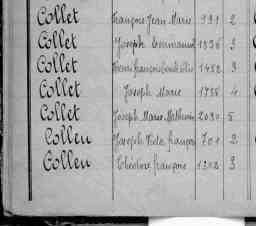 Collet François Jean Marie 191 2
Collet Joseph Emmanuel 1836 3
Collet Henri François 1452 3
Collet Joseph Marie 1788 4
Collet Joseph Marie Mathurin 2030 5
Colleu Joseph François 701 2
Colleu Théodore François 1202 3